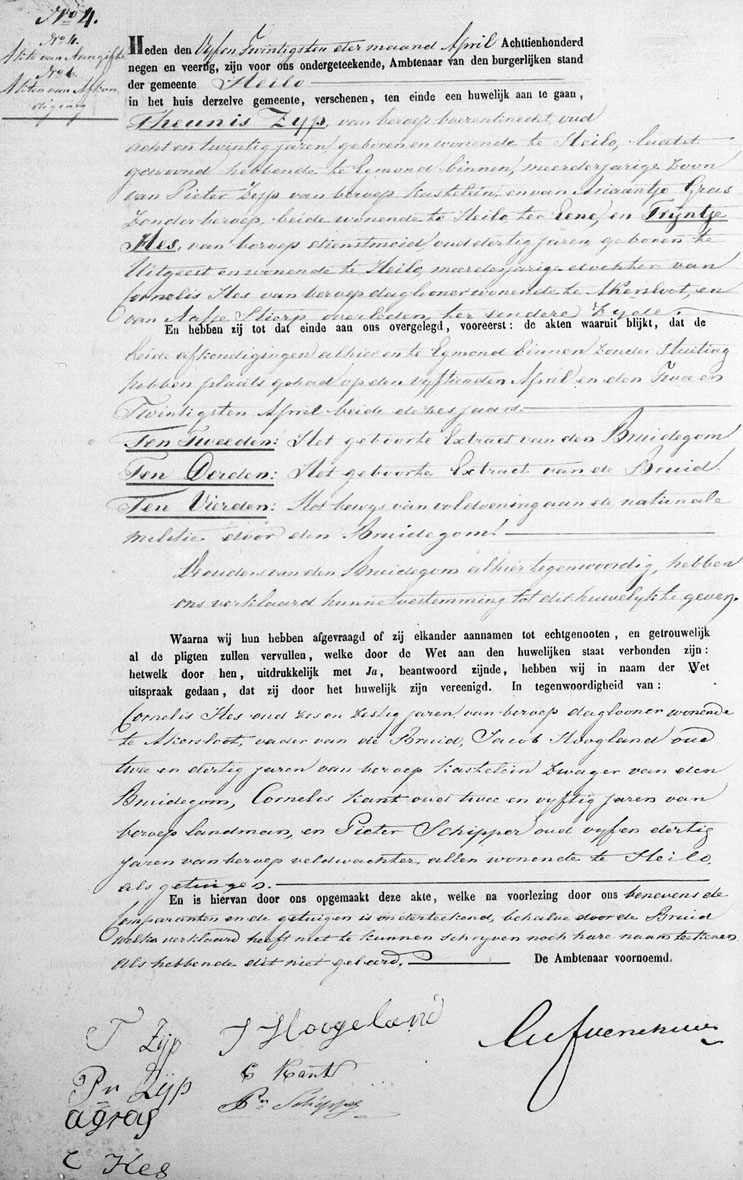 N° 4.
N° 4.
Akte van Aangifte
N° 6.
Akten van Afkon
diging
Heden den Vyf en Twintigsten der maand April Achttienhonderd
negen en veertig, zijn voor ons ondergeteekende, Ambtenaar van den burgerlijken stand
der gemeente Heilo
in het huis derzelve gemeente, verschenen, ten einde een huwelijk aan te gaan,
Theunis Zyp, van beroep boerenknecht, oud
acht en twintig jaren, geboren en wonende te Heilo, laatst
gewoond hebbende te Egmond binnen, meerderjarige Zoon
van Pieter Zyp van beroep kastelein, en van Ariaantje Gras
Zonder beroep, beide wonende te Heilo, ter Eene, en Tryntje
Hes, van beroep dienstmeid, oud dertig jaren, geboren te
Uitgeest en wonende te Heilo, meerderjarige dochter van
Cornelis Hes van beroep daglooner wonende te Akersloot, en
van Aafje Stierp overleden, ter andere Zyde.
En hebben zij tot dat einde aan ons overgelegd, vooreerst: de akten waaruit blijkt, dat de
beide afkondigingen alhier en te Egmond binnen Zonder Stuiting
hebben plaats gehad op den vyftienden April en den Twee en
Twintigsten April beide dezes jaars.
Ten Tweeden: Het geboorte Extract van den Bruidegom
Ten Derden: Het geboorte Extract van de Bruid.
Ten Vierden: Het bewys van voldoening aan de nationale
militie door den Bruidegom.
De ouders van den Bruidegom alhier tegenwoordig, hebben
ons verklaard hunne toestemming tot dit huwelyk te geven.
Waarna wij hun hebben afgevraagd of zij elkander aannamen tot echtgenooten, en getrouwelijk
al de pligten zullen vervullen, welke door de Wet aan den huwelijken staat verbonden zijn:
hetwelk door hen, uitdrukkelijk met Ja, beantwoord zijnde, hebben wij in naam der Wet
uitspraak gedaan, dat zij door het huwelijk zijn vereenigd. In tegenwoordigheid van:
Cornelis Hes oud zes en Zestig jaren, van beroep daglooner wonende
te Akersloot, vader van de Bruid, Jacob Hoogland oud
twee en dertig jaren van beroep kastelein Zwager van den
Bruidegom, Cornelis Kant oud twee en vyftig jaren van
beroep landman, en Pieter Schipper oud vyf en dertig
jaren van beroep veldwachter, allen wonende te Heilo,
als getuigen.
En is hiervan door ons opgemaakt deze akte, welke na voorlezing door ons benevens de
Comparanten en de getuigen is onderteekend, behalve door de Bruid
welke verklaard heeft niet te kunnen schryven noch hare naam teekenen
als hebbende dit niet geleerd. De Ambtenaar voornoemd.
T Zyp J Hoogeland
Pr Zyp C Kant
agras Pr Schipper
C Hes